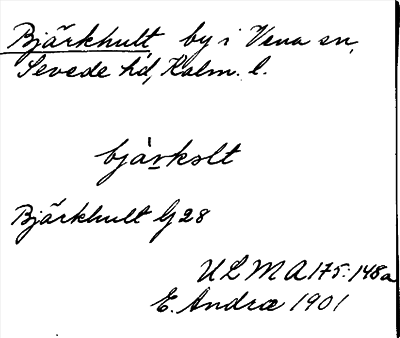 Bjärkhult, by i Vena sn,
Sevede hd, Kalm. l.
bjàrkolt
Bjärkhult G 28
ULMA 175:148a
E. Andræ 1901